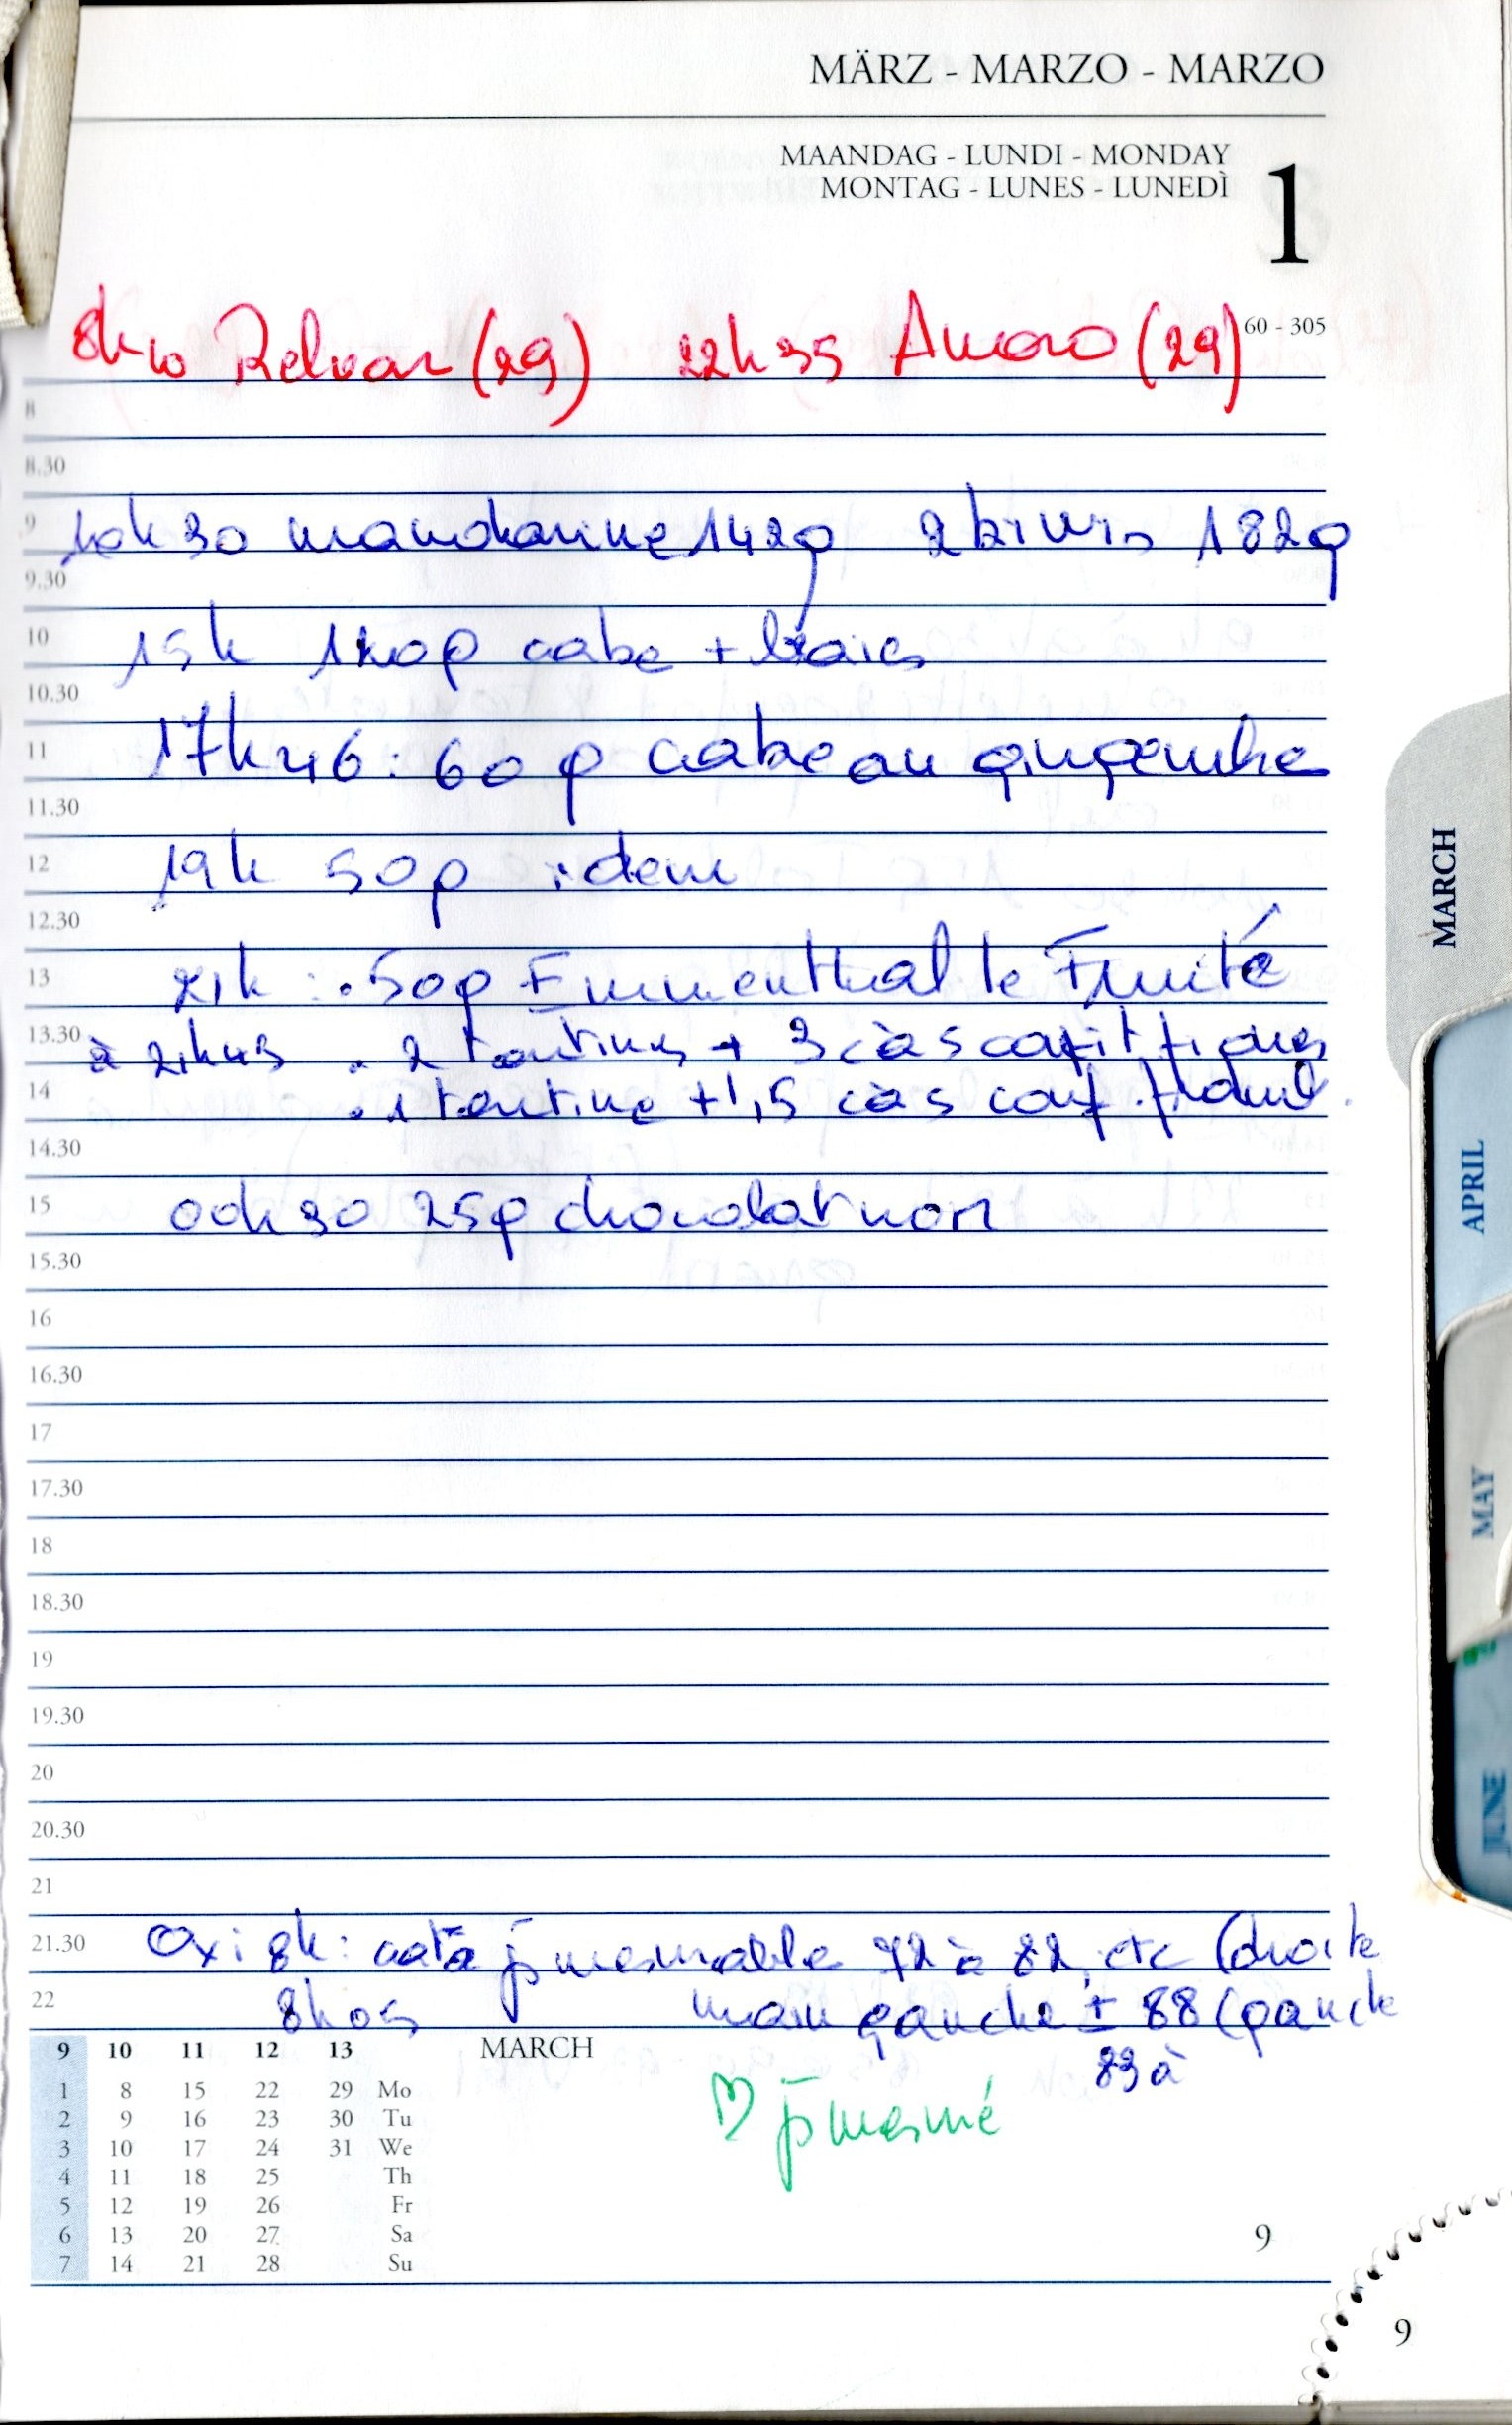 MÄRZ - MARZO - MARZO
MAANDAG - LUNDI - MONDAY
MONTAG - LUNES - LUNEDÌ
1
60 - 305
8h10 Relvar (29) 22h35 (29)
8
8.30
9
10h30 mandarine 142g 2 kiwis 182g
9.30
10
15h cake + frais
10.30
11
17h46 : 60 g cake au gingembre
11.30
12
19h 50g idem
12.30
13
21h : . 50g Emmenthal le Fruité
13.30
à 21h45 . 2 tartines + 3 càs confit
14
. 1 tartine + 1,5 càs conf.
14.30
15
00h30 25g chocolat noir
15.30
16
16.30
17
17.30
18
18.30
19
19.30
20
20.30
21
21.30
Oxi 8h : mesurable 72 à 82, etc (droite
22
8h05 main gauche ± 88 (gauche
83 à
9 10 11 12 13 MARCH
1 8 15 22 29 Mo
2 9 16 23 30 Tu
3 10 17 24 31 We
4 11 18 25 Th
5 12 19 26 Fr
6 13 20 27 Sa
7 14 21 28 Su
9
9
MARCH
APRIL
MAY
JUNE